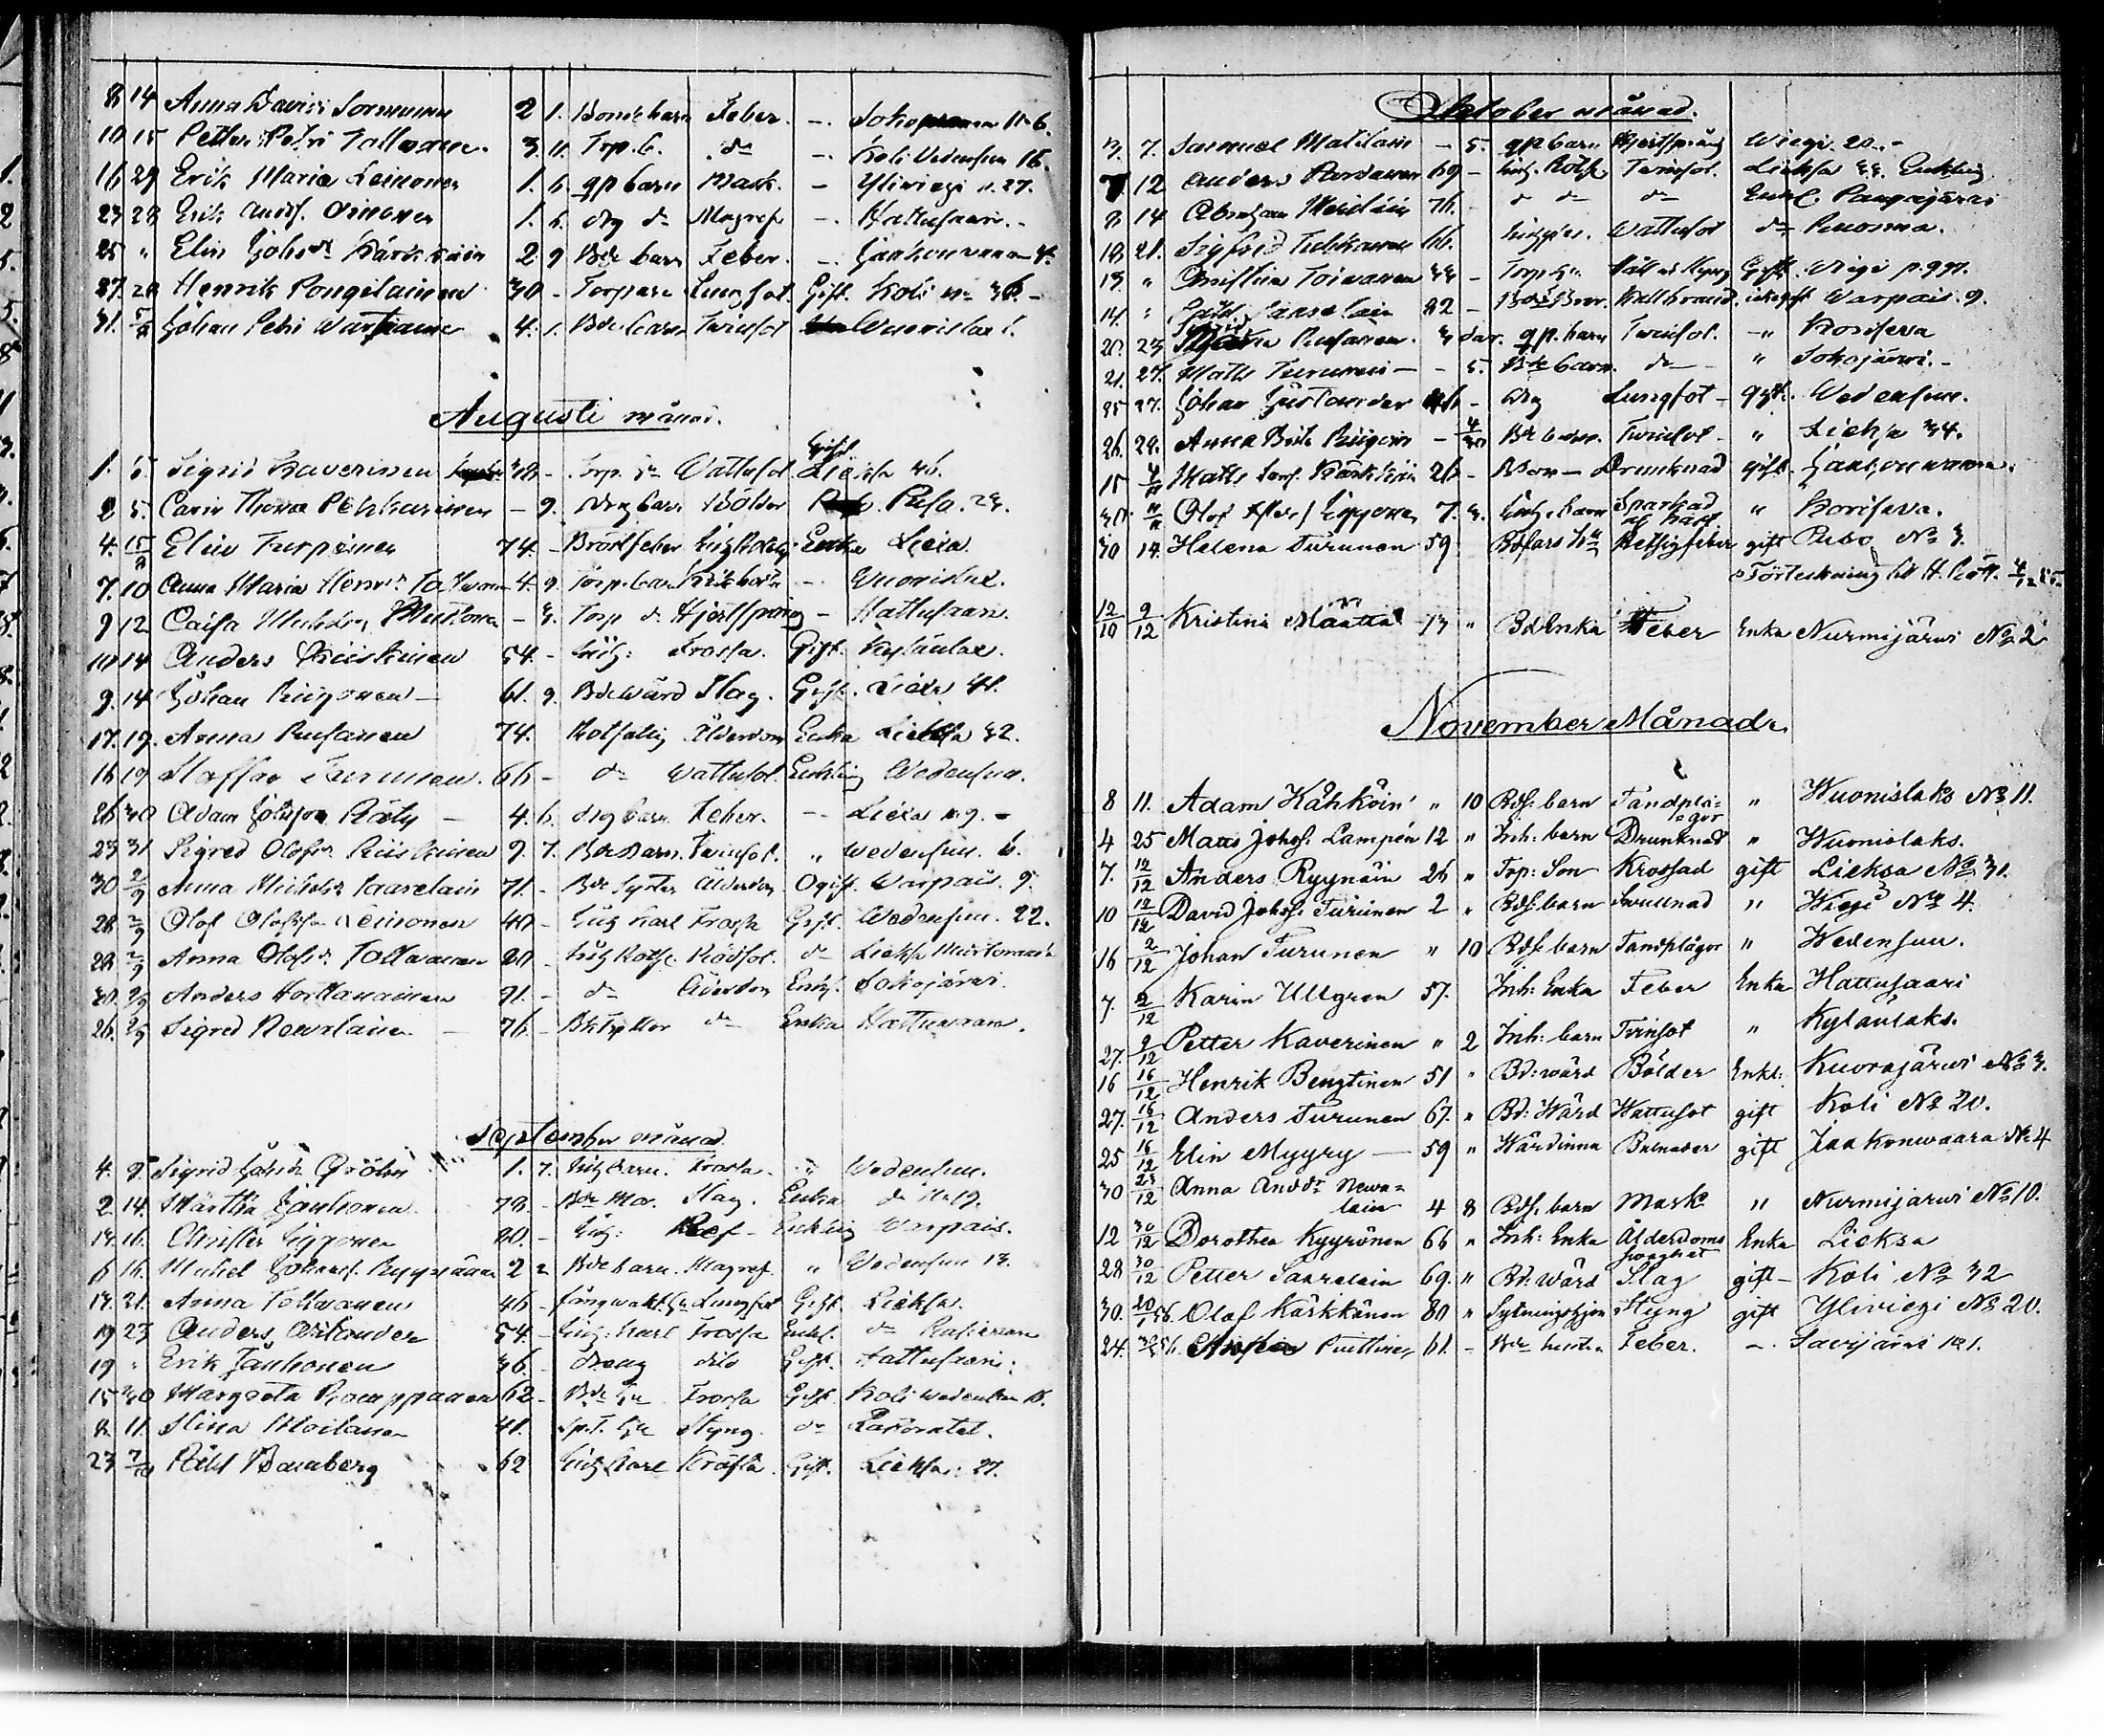 8 14 Anna Davidr Sormunen 2 1. Bonde barn Feber. - Soko 11 6.
10 15 Petter Petri Tolvanen. 3 11. Trp. b. do - Koli Vedensuu 16.
16 29 Erik Maria Leinonen 1. 6. qp barn Mask. - Yliviegi n. 27.
23 28 Erik Oinonen 1. 6. drg do Magref - Hattusaari. -
25 " Elin Johsdr Kärkkäin 2 9 Bde barn Feber. - Jankonvaara 4.
27. 28 Henrik Pongelainen 30 - Torpare Lungsot. Gift. Koli no 36. -
31. Johan Petri Wartiainen 4. 1. Bde barn Twinsot Wuonislax 1.
Augusti månad.
1. 5 Sigrid Kaverinen 38 - Torp. hu Vattusot. Lieksa 46.
2 5. Carin Thomæ Pehkarinen - 9. drg barn Bölder Puso. 23.
4. 15/8 Elin Turpeinen 74. - Bröstfeber Enka Liexa.
7. 10 Anna Maria Henrdr Tolvanen 4. 9. Torp. barn - Wuonislax.
9 12 Caisa Mustonen - 3. Torp do Hjertsprång - Hattusaari.
10 14 Anders Kiiskinen 54. - Inh: Frossa. Gift. Kylänlax.
9. 14 Johan Piiponen - 61. 9. Bdewärd Slag. Gift. Liexa 41.
17. 19. Anna Rusanen 74. Rotfattig Ålderdom Enka Lieksa 32.
16 19 Staffan Turunen. 66 - do Wattusot. Enkling Wedensuu.
26 30 Adam Johsson Räty - 4. 6. drg barn Feber. - Liexa n. 9. -
23 31 Sigred Olofsdr Kiiskinen 9. 7. Bde Barn. Twinsot. " Wedensuu. 6.
30 2/9 Anna Michelsdr Saarelain 71. - Bde Syster Ålderdom Ogift. Warpais. 9.
28 2/9 Olof Olofsson Leinonen 40 - Inh karl Frossa Gift. Wedensuu. 22.
28 2/9 Anna Olofsdr Tolvanen 20 - Inh Rödsot. do Lieksa
30. Anders Hortanainen 91. - do Ålderdom Enkl. Sokojärvi.
26. Sigred Nevalain - 76. - do Enka Hattuvaara.
September månad.
4. 9. Sigrid Johsdr Gröhn 1. 7. Inh barn. Frossa. " Wedensuu.
2. 14. Märtha Jauhonen 79. - Bde Mor. Slag. Enka do No 19.
14. 16. Christer Epponen 80. - Inh: Enkling Warpais.
6 16. Michel Johansf. Ryynänen 2 2 Bde barn. Magref. " Wedensuu 13.
14. 21. Anna Tolvanen 46 - Fångvakt. hu Lungsot Gift. Lieksa.
19 23 Anders Wikander 54. - Inh: karl Frossa Enkl. do
19 " Erik Jauhonen 36. - dreng dito Gift. Hattusaari.
15 30 Margreta Kauppanen 62 - Bde hu Frossa Gift. Koli Wedensuu 16.
8. 11. Stina Moilanen 41. Sp.T. hu Styng. do
23 7/10 Pähl Bamberg 62 Inh karl Kräfta. Gift. Lieksa 27.
Oktober månad.
3. 7. Samuel Matilain - 5. qp barn Hjertsprång Wiegi 20. -
7. 12 Anders Pardanen 69 - Inh. Rothj. Twinsot. Lieksa 33. Enkling
8 14 Abraham Meriläin 76. do do Enkl. Pangajärvi
18. 21. Sigfrid Tuhkanen 66. Inhyses. Wattusot do Ruosma.
13. " Christina Toivanen 33 - Torp hu Håll och Styng Gift. Wiegi
14. " Saarelain 82 - Bde Bror. Kallbrand ogift Warpais. 9.
20. 23 Rusanen. 3 dar. qp. barn Twinsot. - " Kontsera
21. 27. Matts Turunen - - 5. Bde barn. do " Sokojärvi. -
25 27. Johan Gustander 46 - drg Lungsot - gift. Wedensuu.
26. 28. Anna Brita Piipoin - 4/30 Bde barn. Twinsot - " Lieksa 34.
15 4/11 Matts Larsf. Kärkkäin 26 - Bson - Drunknad gift Jankonvaara.
30. 11/11 Olof Epponen 7. 3. Inh. barn Sparkad af häst " Konsera.
30 14. Helena Turunen 59 Bdfars hu Hettsigfeber gift Puso No 3.
Förteckning till H. Kott. 4/12 55.
12/10 9/12 Kristina Määttä 73 " Bd Enka Feber Enka Nurmijärvi No 2
November Månad.
8 11. Adam Kähköin " 10 Bdf. barn Tandplågor " Wuonislaks No 11.
4 25 Matts Johsf. Lampén 12 " Inh: barn Drunknad " Wuonislaks.
7. 12/12 Anders Ryynäin 26 " Torp: Son Krossad gift Lieksa No 31.
10 12/12 David Johsf. Turunen 2 " Bdf. barn Swullnad " Wiegi No 4.
16 2/12 Johan Turunen " 10 Bdf. barn Tandplågor " Wedensuu.
7. 2/12 Karin Ullgren 57. Inh: Enka Feber Enka Hattusaari
27. 2/12 Petter Kaverinen " 2 Inh: barn Tvinsot " Kylänlaks.
16 16/12 Henrik Bengtinen 51 " Bd: wärd Bölder Enkl: Kuorajärwi No 3.
27. 16/12 Anders Turunen 67. " Bd: Wärd Wattusot gift Koli No 20.
25 16/12 Elin Myyry - 59 " Wärdinna Bulnader gift Jaakonwaara No 4
30 23/12 Anna Anddr Newalain 4 8 Bdf. barn Mask " Nurmijärwi No 10.
12 30/12 Dorothea Kyyrönen 66 " Inh: Enka Ålderdoms svaghet Enka Lieksa
28 30/12 Petter Saarelain 69. " Bd: wärd Slag gift - Koli No 32
30. 20/1 56. Olof Kärkkänen 80 " Sytningshjon Styng gift Yliviegi No 20.
24. 56. Puttinen 61. - Bde Feber. - Savijärvi no 1.